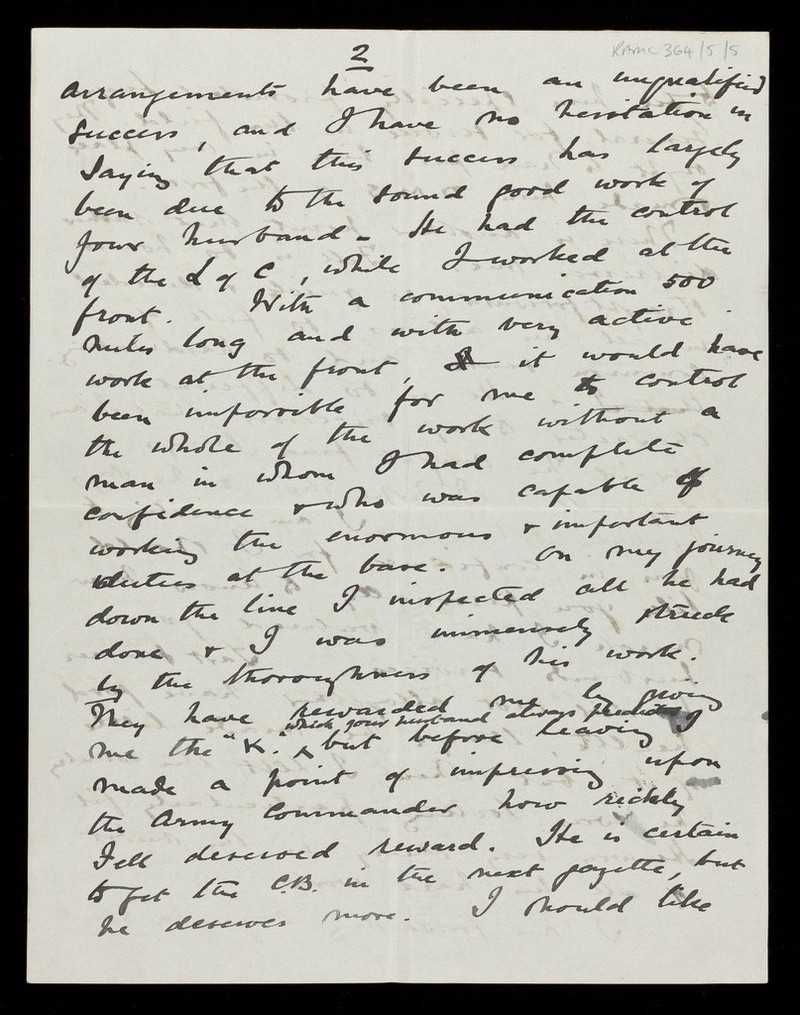 2
RAMC 364/5/5
arrangements have been an unqualified
success, and I have no hesitation in
saying that this success has largely
been due to the sound good work of
your husband - He had the control
of the L of C, while I worked at the
front. With a communication 500
miles long and with very active
work at the front, it would have
been impossible for me to control
the whole of the work without a
man in whom I had complete
confidence & who was capable of
working the enormous & important
duties at the base. On my journey
down the line I inspected all he had
done & I was immensely struck
by the thoroughness of his work.
They have rewarded me by giving
which your husband always predicted
me the "K." but before leaving I
made a point of impressing upon
the Army Commander how richly
Fell deserved reward. He is certain
to get the C.B. in the next gazette, but
he deserves more. I should like